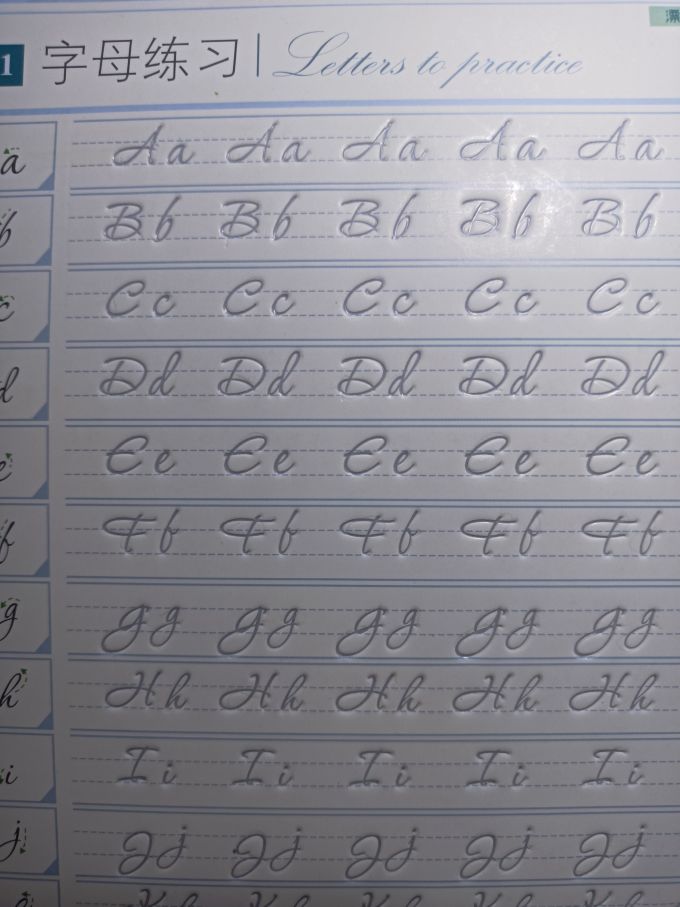 1 字母练习 Letters to practice
a Aa Aa Aa Aa Aa
b Bb Bb Bb Bb Bb
c Cc Cc Cc Cc Cc
d Dd Dd Dd Dd Dd
e Ee Ee Ee Ee Ee
f Ff Ff Ff Ff Ff
g Gg Gg Gg Gg Gg
h Hh Hh Hh Hh Hh
i Ii Ii Ii Ii Ii
j Jj Jj Jj Jj Jj